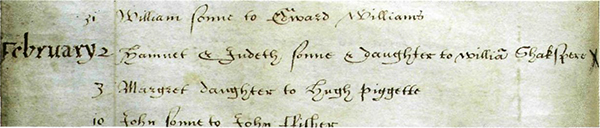 31 William sonne to Edward Williams
February 2 Hamnet & Judeth sonne & daughter to Willia Shakspere X
3 Margret daughter to Hugh Piggette
10 John sonne to John